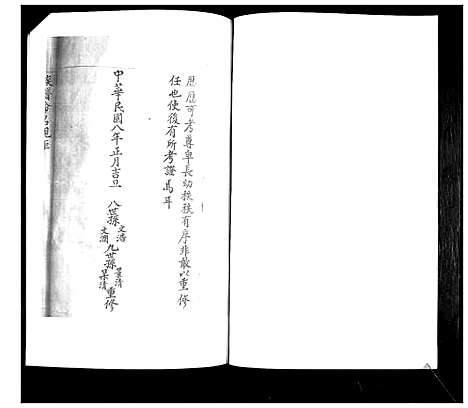 歷歷可考尊卑長幼秩秩有序非敢以重修
任也使後有所考證焉耳
中華民國八年正月吉旦 八世孫 文浩 文瀾 九世孫 景清 杲清 重修